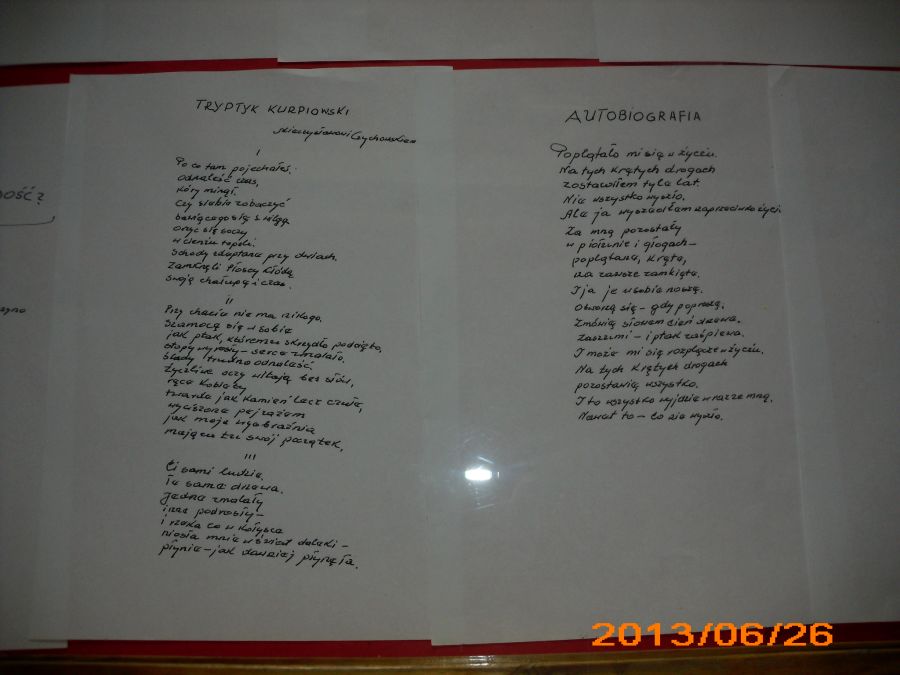 OŚĆ?
TRYPTYK KURPIOWSKI
I
Po co tam pojechałeś.
Odnaleść czas,
który minął.
Czy siebie zobaczyć
bawiącego się z wilgą.
oczy
w cieniu topoli.
Schody zdeptane przy dwiach.
Zamknęli
swoją chałupę i czas.
II
Przy chacie nie ma nikogo.
Szamocą się w sobie
jak ptak, któremu skrzydło podcięto.
stopy wyrosły – serce zmalało.
ślady trudno odnaleść.
Życzliwe oczy witają bez słów,
ręce kobiety
twarde jak kamień lecz czułe,
wyciszone pejzażem
jak moja wyobraźnia
mająca tu swój początek,
III
Ci sami ludzie.
Te same drzewa.
Jedne zmalały
inne podrosły –
i rzeka co w kołysce
niosła mnie w świat daleki –
płynie – jak dawniej płynęła.
AUTOBIOGRAFIA
Poplątało mi się w życiu.
Na tych krętych drogach
zostawiłem tyle lat.
Nie wszystko wyszło.
Ale ja wyszedłem naprzeciwko życiu
Za mną pozostały
w piołunie i głogach –
poplątane, kręte,
na zawsze zamknięte.
I ja je w sobie noszę.
Otworzą się – gdy poproszę.
Zmówią słowem cień drzewa.
Zaszumi – i ptak zaśpiewa.
I może mi się rozplącze w życiu.
Na tych krętych drogach
pozostawię wszystko.
I to wszystko wyjdzie w raz ze mną.
Nawet to – co nie wyszło.
2013/06/26